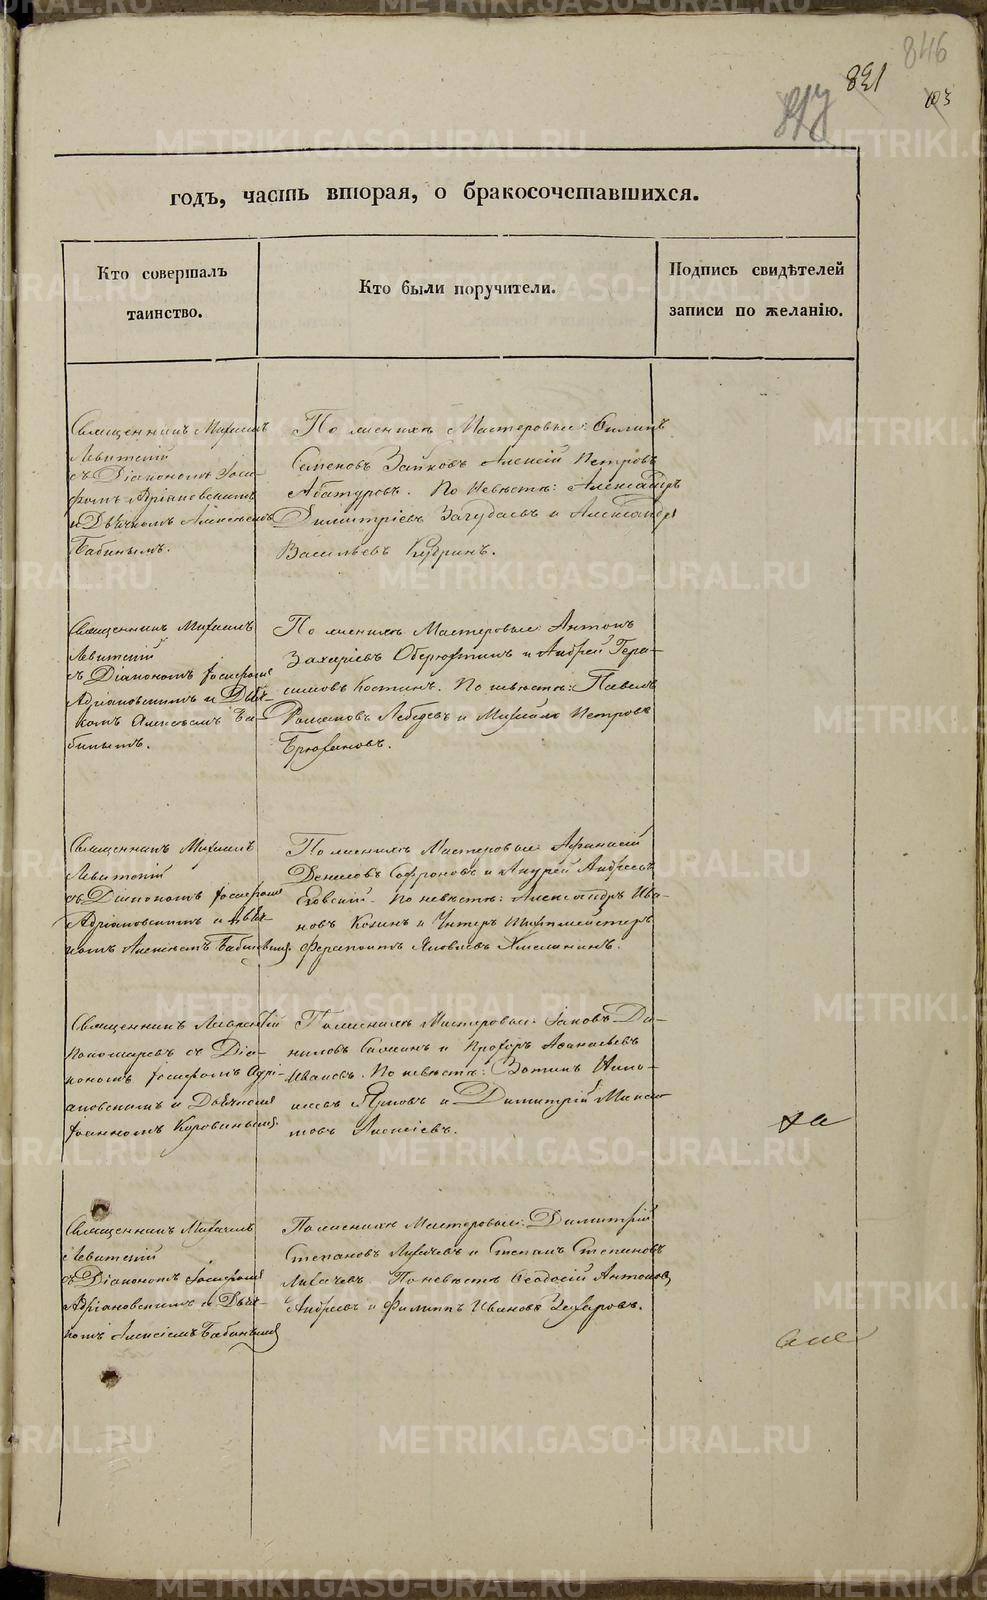 846
821
103
годъ, часть вторая, о бракосочетавшихся.
Кто совершалъ
таинство.
Кто были поручители.
Подпись свидѣтелей
записи по желанію.
Священникъ Михаилъ
Левитскій
съ Діакономъ Іоси-
фомъ Адріановскимъ
и Дьячкомъ Алексѣемъ
Бабинымъ.
По женихѣ Мастеровые: Филипъ
Семеновъ Зайковъ Алексій Петровъ
Абатуровъ. По Невѣстѣ: Александръ
Димитріевъ Загудаевъ и Александръ
Васильевъ Кудринъ.
Священникъ Михаилъ
Левитскій
съ Діакономъ Іосифомъ
Адріановскимъ и Дьяч-
комъ Алексѣемъ Ба-
бинымъ.
По женихѣ Мастеровые: Антонъ
Захаріевъ Оберюхтинъ и Андрей Гера-
симовъ Костинъ. По невѣстѣ: Павелъ
Романовъ Лебедевъ и Михаилъ Петровъ
Брюхановъ.
Священникъ Михаилъ
Левитскій
съ Діакономъ Іосифомъ
Адріановскимъ и Дьяч-
комъ Алексѣемъ Бабинымъ.
По женихѣ Мастеровые: Афанасій
Денисовъ Софроновъ и Андрей Андреевъ
По невѣстѣ: Александръ Ива-
новъ Козинъ и Унтеръ Шихтмейстеръ
Ферапонтъ Яковлевъ
Священникъ Лаврентій
Пономаревъ съ Діа-
кономъ Іосифомъ Адрі-
ановскимъ и Дьячкомъ
Іоанномъ Коровинымъ.
По женихѣ Мастеровые: Іаковъ Да-
ниловъ и Прохоръ Афанасьевъ
Ивановъ. По невѣстѣ: Зотикъ
и Димитрій
Алексіевъ.
Священникъ Михаилъ
Левитскій
съ Діакономъ Іосифомъ
Адріановскимъ и Дьяч-
комъ Алексіемъ Бабинымъ
По женихѣ Мастеровые: Димитрій
Степановъ Лихачевъ и Степанъ Степановъ
Лихачевъ По невѣстѣ Феодосій Антоновъ
Андреевъ и Филиппъ Ивановъ Захаровъ.
METRIKI.GASO-URAL.RU